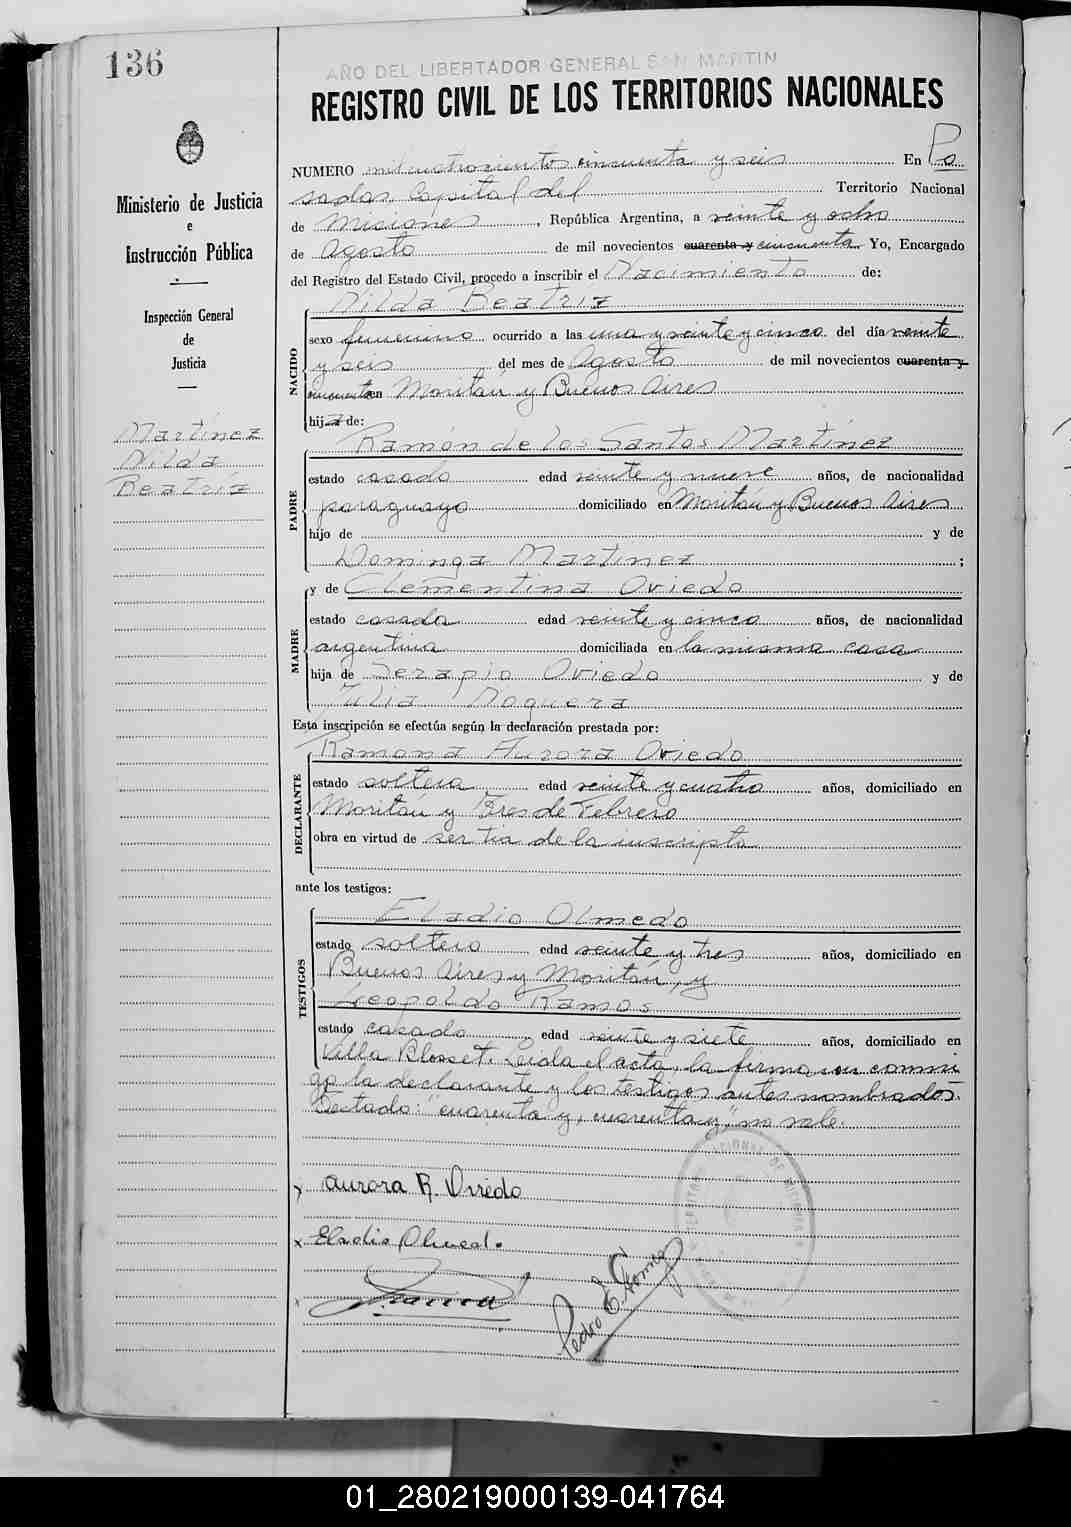 136
AÑO DEL LIBERTADOR GENERAL SAN MARTIN
REGISTRO CIVIL DE LOS TERRITORIOS NACIONALES
Ministerio de Justicia
e
Instrucción Pública
Inspección General
de
Justicia
Martínez
Nilda
Beatriz
NUMERO mil cuatrocientos cincuenta y seis En Po
sadas Capital del Territorio Nacional
de Misiones, República Argentina, a veinte y ocho
de Agosto de mil novecientos cuarenta y cincuenta. Yo, Encargado
del Registro del Estado Civil, procedo a inscribir el Nacimiento de:
Nilda Beatriz
NACIDO
sexo femenino ocurrido a las una y veinte y cinco del día veinte
y seis del mes de Agosto de mil novecientos cuarenta y
cincuenta en Moritán y Buenos Aires
hija de:
Ramón de los Santos Martínez
PADRE
estado casado edad veinte y nueve años, de nacionalidad
paraguayo domiciliado en Moritán y Buenos Aires
hijo de y de
Dominga Martínez;
y de Clementina Oviedo
MADRE
estado casada edad veinte y cinco años, de nacionalidad
argentina domiciliada en la misma casa
hija de Serapio Oviedo y de
Julia Noguera
Esta inscripción se efectúa según la declaración prestada por:
Ramona Aurora Oviedo
DECLARANTE
estado soltera edad veinte y cuatro años, domiciliado en
Moritán y Tres de Febrero
obra en virtud de ser tia de la inscripta
ante los testigos:
Eladio Olmedo
TESTIGOS
estado soltero edad veinte y tres años, domiciliado en
Buenos Aires y Moritán, y
Leopoldo Ramos
estado casado edad veinte y siete años, domiciliado en
Villa Blosset. Leida el acta, la firma con conmi
go la declarante y los testigos antes nombrados.
Testado: "cuarenta y, cuarenta y", no vale.
x Aurora R. Oviedo
x Eladio Olmedo.
x
Pedro E. Gomez
01_280219000139-041764